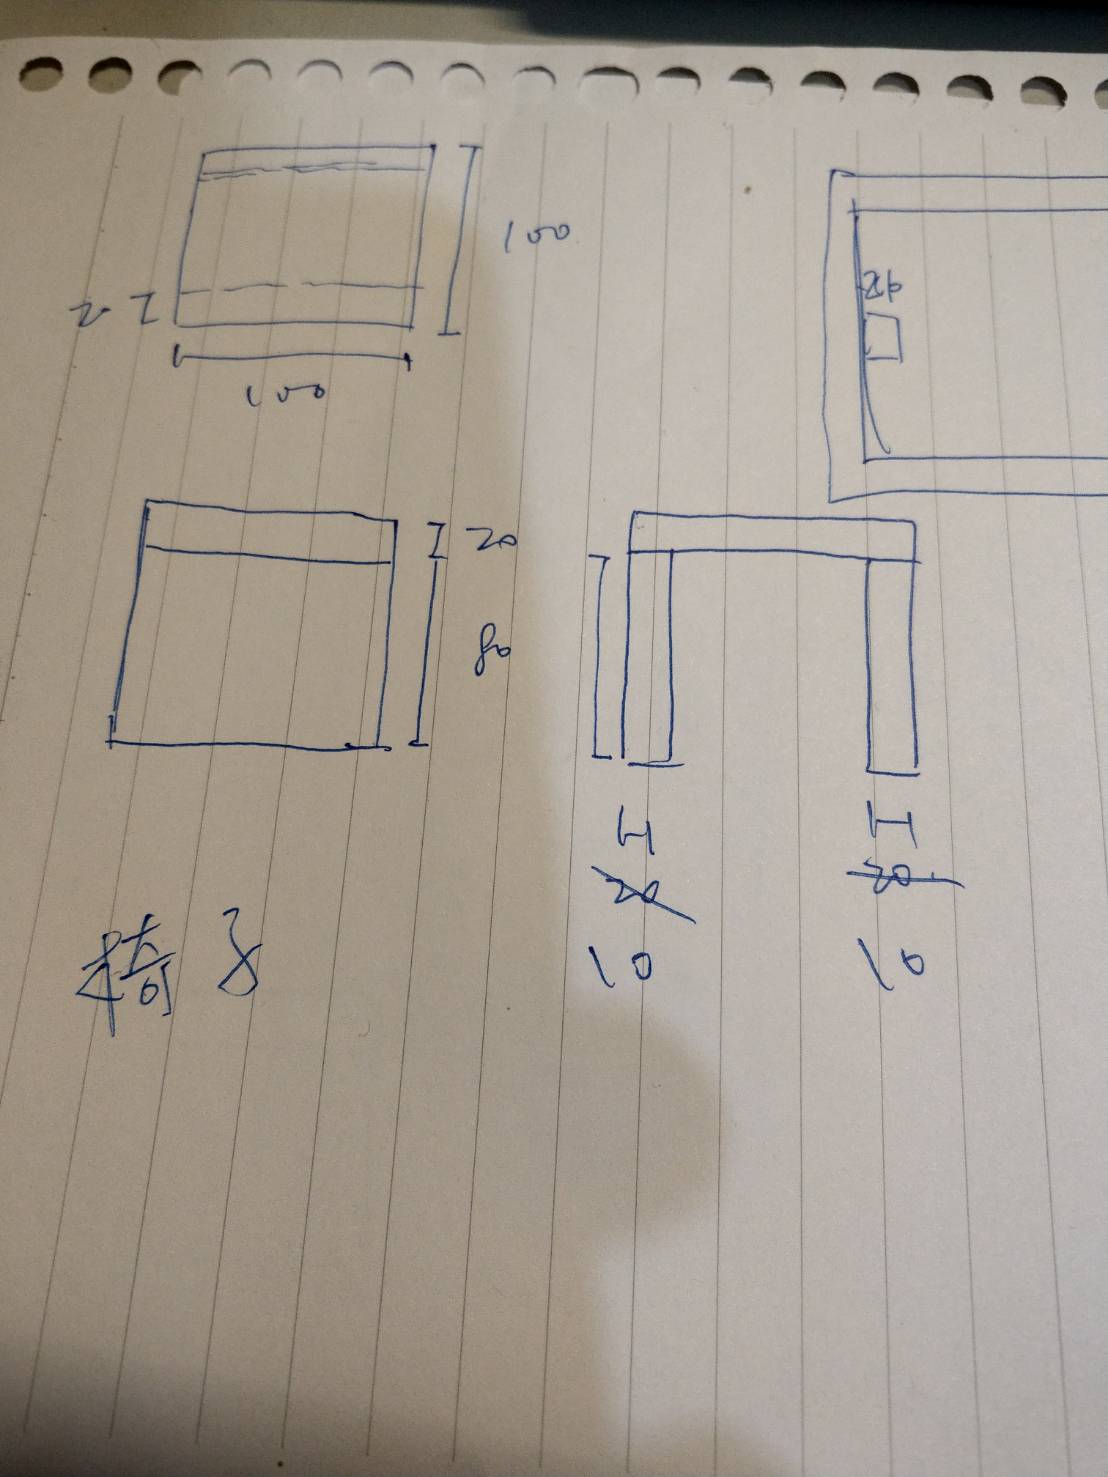 100
100
20
80
20
10
20
10
椅子